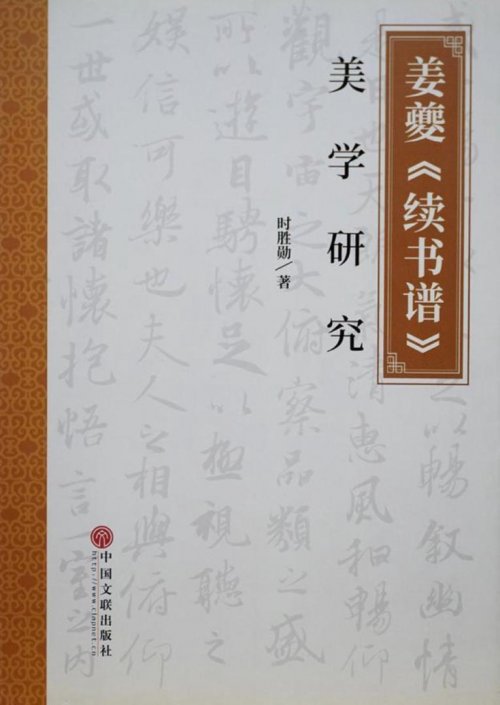 姜夔《续书谱》
美学研究
时胜勋/著
中国文联出版社
http://www.clapnet.cn
以暢叙幽情
是日也天朗氣清惠風和暢仰
觀宇宙之大俯察品類之盛
所以遊目騁懷足以極視聽之
娱信可樂也夫人之相與俯仰
一世或取諸懷抱悟言一室之内